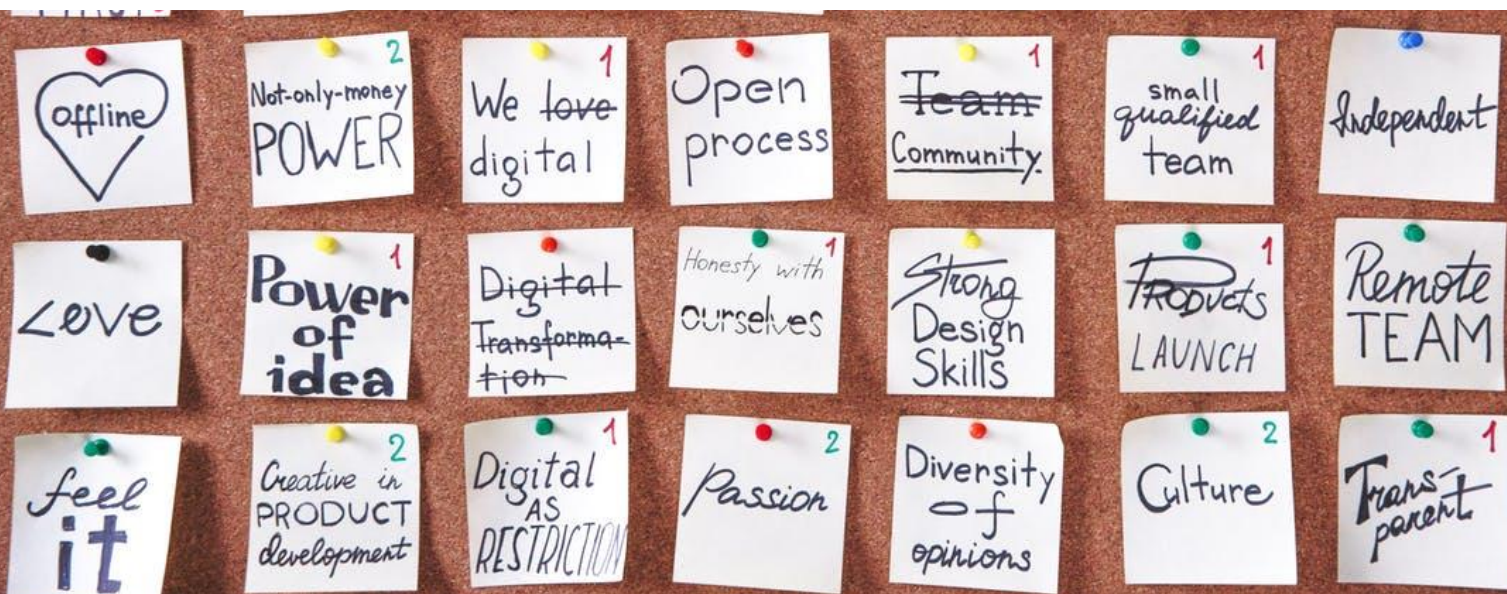 offline
2
Not-only-money
POWER
1
We love
digital
Open
process
1
Team
Community.
1
small
qualified
team
Independent
Love
1
Power
of
idea
Digital
Transforma-
tion
1
Honesty with
ourselves
Strong
Design
Skills
1
PRODUCTS
LAUNCH
Remote
TEAM
feel
it
2
Creative in
PRODUCT
development
1
Digital
AS
RESTRICTION
2
Passion
Diversity
of
opinions
2
Culture
1
Trans-
parent